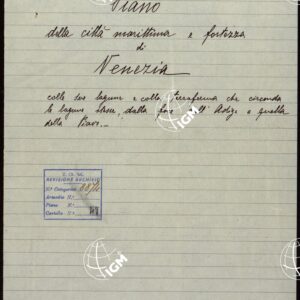 Piano
della città marittima e fortezza
di
Venezia
colle sue lagune e colla terraferma che circonda
le lagune stesse, dalla foce dell'Adige a quella
della Piave._
I. G. M.
REVISIONE ARCHIVIO
N° Categorico
Armadio N°
Piano N°
Cartella N°
IGM
IGM
IGM